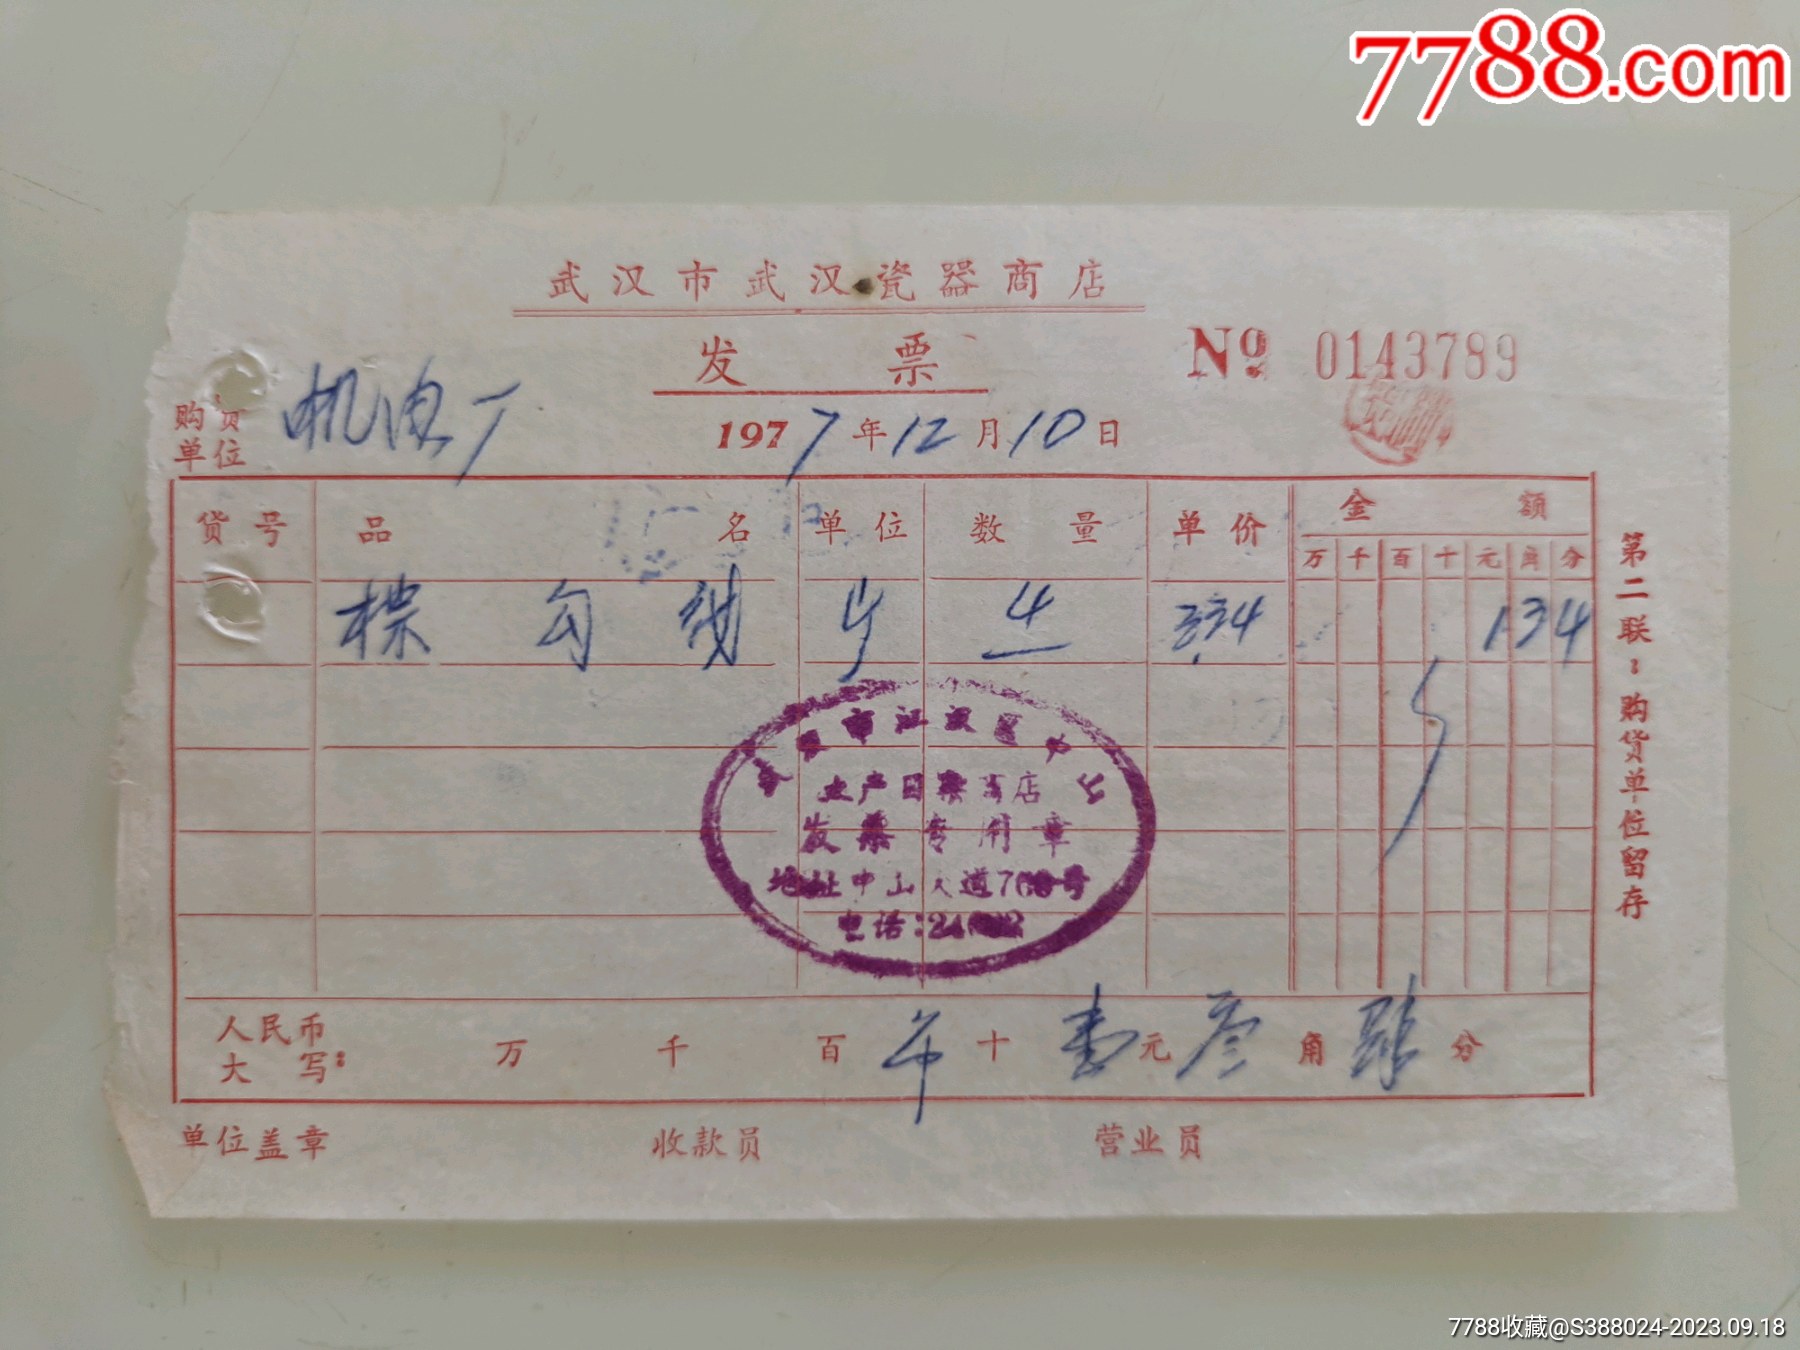 7788.com
武汉市武汉瓷器商店
发票
No 0143789
购货单位 机电厂
1977年12月10日
货号 品名 单位 数量 单价 金额
万千百十元角分
棕 勾 4 334 134
市江汉区
土产日杂商店
发票专用章
地址中山大道7
电话:24
人民币大写: 万 千 百 十 壹元 叁角 肆分
单位盖章 收款员 营业员
第二联:购货单位留存
7788收藏@S388024-2023.09.18